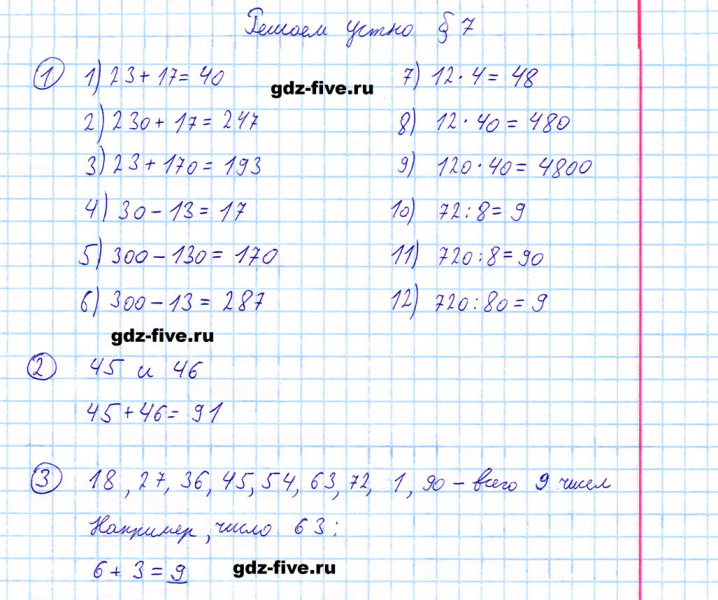 Решаем устно § 7
1 1) 23 + 17 = 40
gdz-five.ru
7) 12 · 4 = 48
2) 230 + 17 = 247
8) 12 · 40 = 480
3) 23 + 170 = 193
9) 120 · 40 = 4800
4) 30 - 13 = 17
10) 72 : 8 = 9
5) 300 - 130 = 170
11) 720 : 8 = 90
6) 300 - 13 = 287
12) 720 : 80 = 9
gdz-five.ru
2 45 и 46
45 + 46 = 91
3 18, 27, 36, 45, 54, 63, 72, 1, 90 - всего 9 чисел
Например, число 63:
6 + 3 = 9
gdz-five.ru